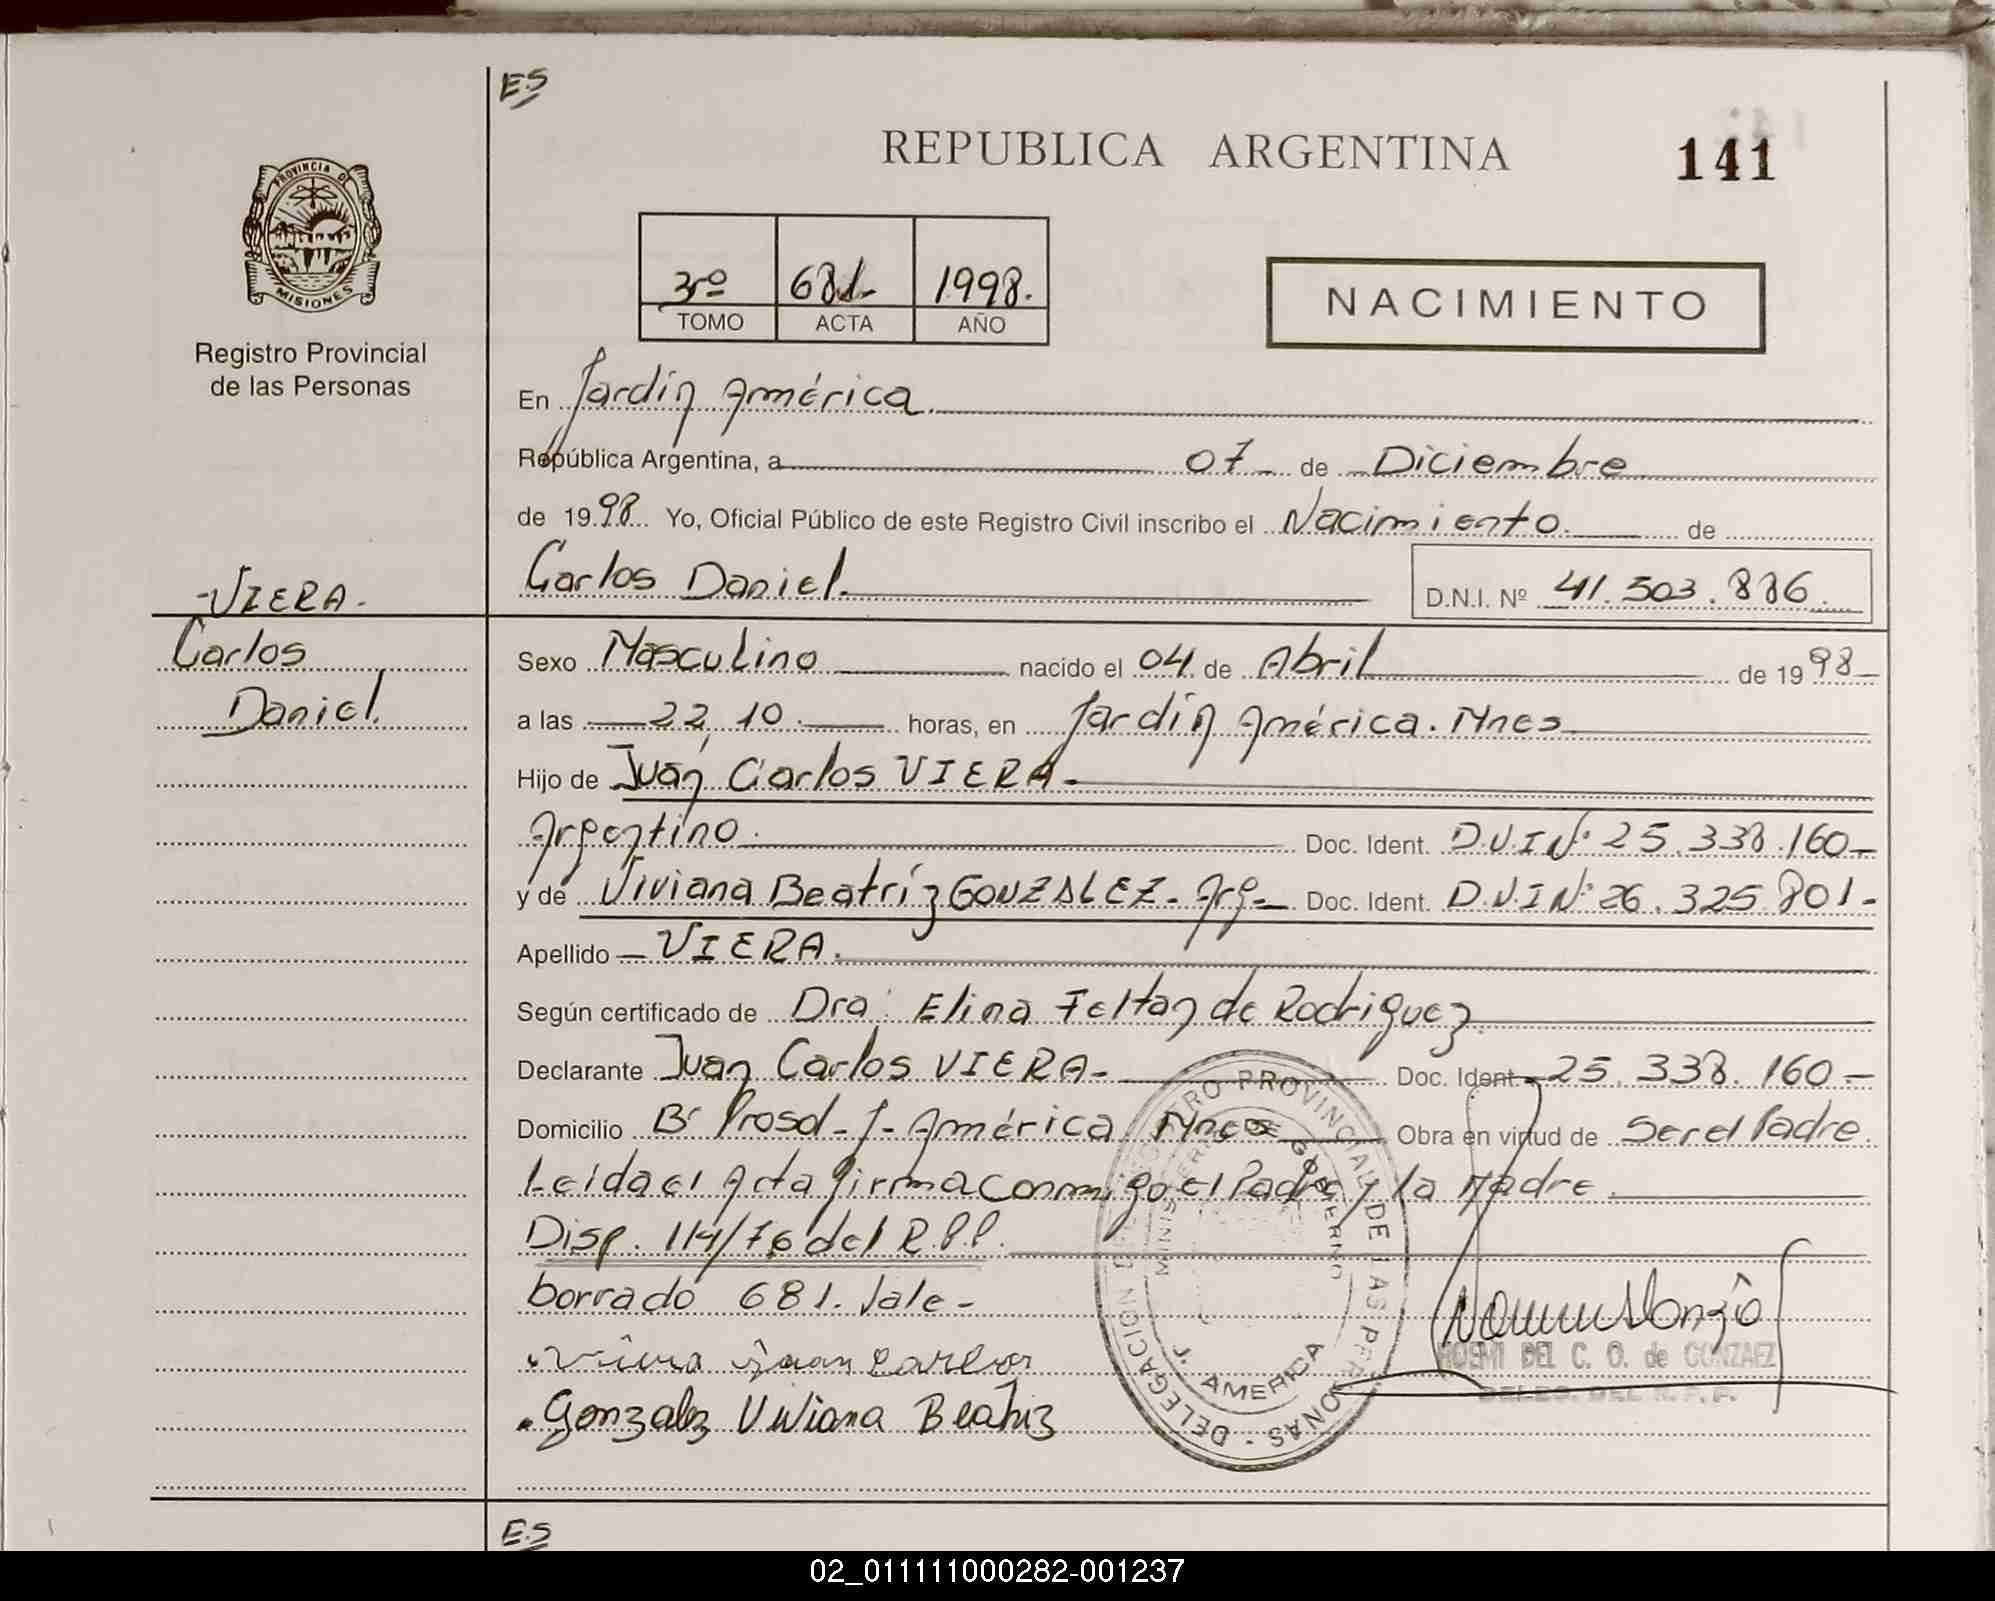 E.S
REPUBLICA ARGENTINA
141
PROVINCIA DE
MISIONES
Registro Provincial
de las Personas
3º 681- 1998.
TOMO ACTA AÑO
NACIMIENTO
En Jardín América.
República Argentina, a 07 de Diciembre
de 1998 Yo, Oficial Público de este Registro Civil inscribo el Nacimiento. de
Carlos Daniel. D.N.I. Nº 41.503.886.
-VIERA-
Carlos
Daniel.
Sexo Masculino nacido el 04 de Abril de 1998
a las 22,10. horas, en Jardín América. Mnes
Hijo de Juan Carlos VIERA-
Argentino. Doc. Ident. D.N.I Nº 25.338.160-
y de Viviana Beatríz GONZALEZ- Arg- Doc. Ident. D.N.I Nº 26.325.801-
Apellido - VIERA.
Según certificado de Dra: Elina Feltan de Rodriguez
Declarante Juan Carlos VIERA- Doc. Ident. 25.338.160-
Domicilio Bº Prosol- J- América Mnes Obra en virtud de Ser el Padre.
Leida el Acta firma conmigo el Padre y la Madre.
Disp. 114/76 del R.P.P.
borrado 681. Vale-
Viera Juan Carlos
Gonzalez Viviana Beatriz
REGISTRO PROVINCIAL DE LAS PERSONAS - DELEGACION
MINISTERIO DE GOBIERNO
J. AMERICA
NOEMI DEL C. O. de GONZAEZ
DELEG. DEL R.P.P.
E.S
02_011111000282-001237